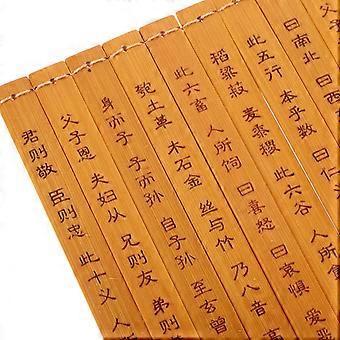 曰南北 曰西
此五行 本乎数 曰仁义
稻粱菽 麦黍稷 此六谷 人所食
此六畜 人所饲 曰喜怒 曰哀惧 爱恶
匏土革 木石金 丝与竹 乃八音 高
身而子 子而孙 自子孙 至玄曾
父子恩 夫妇从 兄则友 弟则
君则敬 臣则忠 此十义 人